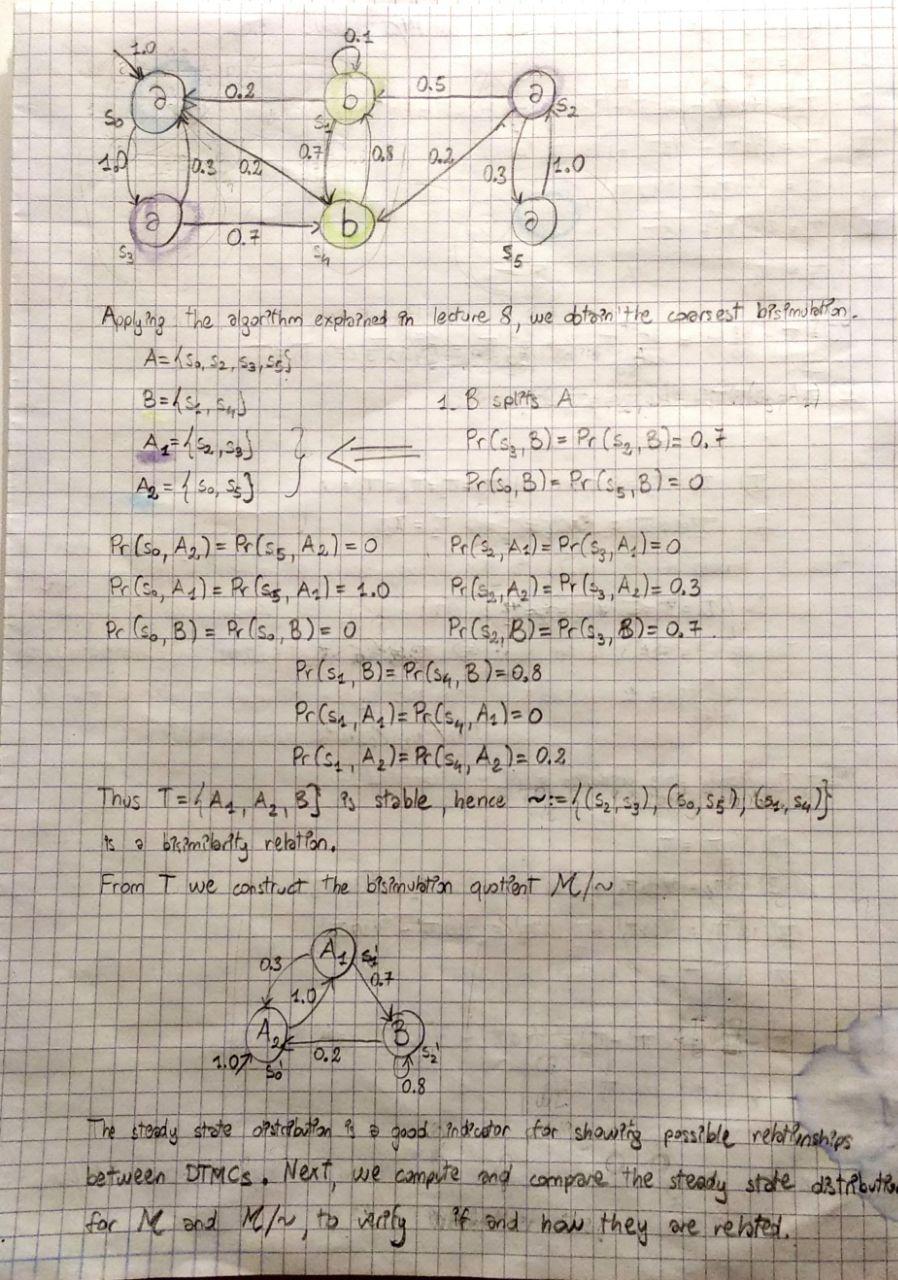 1.0
0.1
a
0.2
b
0.5
a
s₀
s₁
s₂
1.0
0.3
0.2
0.7
0.8
0.2
0.3
1.0
a
0.7
b
a
s₃
s₄
s₅
Applying the algorithm explained in lecture 8, we obtain the coarsest bisimulation.
A={s₀, s₂, s₃, s₅}
B={s₁, s₄}
1. B splits A
A₁={s₂, s₃}
Pr(s₃, B) = Pr(s₂, B) = 0.7
A₂ = {s₀, s₅}
Pr(s₀, B) = Pr(s₅, B) = 0
Pr(s₀, A₂) = Pr(s₅, A₂) = 0
Pr(s₂, A₁) = Pr(s₃, A₁) = 0
Pr(s₀, A₁) = Pr(s₅, A₁) = 1.0
Pr(s₂, A₂) = Pr(s₃, A₂) = 0.3
Pr(s₀, B) = Pr(s₀, B) = 0
Pr(s₂, B) = Pr(s₃, B) = 0.7.
Pr(s₁, B) = Pr(s₄, B) = 0.8
Pr(s₁, A₁) = Pr(s₄, A₁) = 0
Pr(s₁, A₂) = Pr(s₄, A₂) = 0.2
Thus T={A₁, A₂, B} is stable, hence ~:={(s₂, s₃), (s₀, s₅), (s₁, s₄)}
is a bisimilarity relation.
From T we construct the bisimulation quotient M/~
A₁
s₁'
0.3
0.7
1.0
A₂
B
0.2
s₂'
1.0
s₀'
0.8
The steady state distribution is a good indicator for showing possible relationships
between DTMCs. Next, we compute and compare the steady state distribution
for M and M/~, to verify if and how they are related.